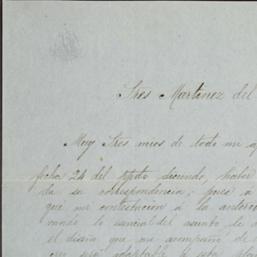 Sres Martinez del
Muy Sres mios de todo mi a
fecha 24 del ppdo diciendo, haber
da su correspondencia; pues a
qué mi contestacion á la anterior
lo esencial del asunto de
el diario que me acompaña de